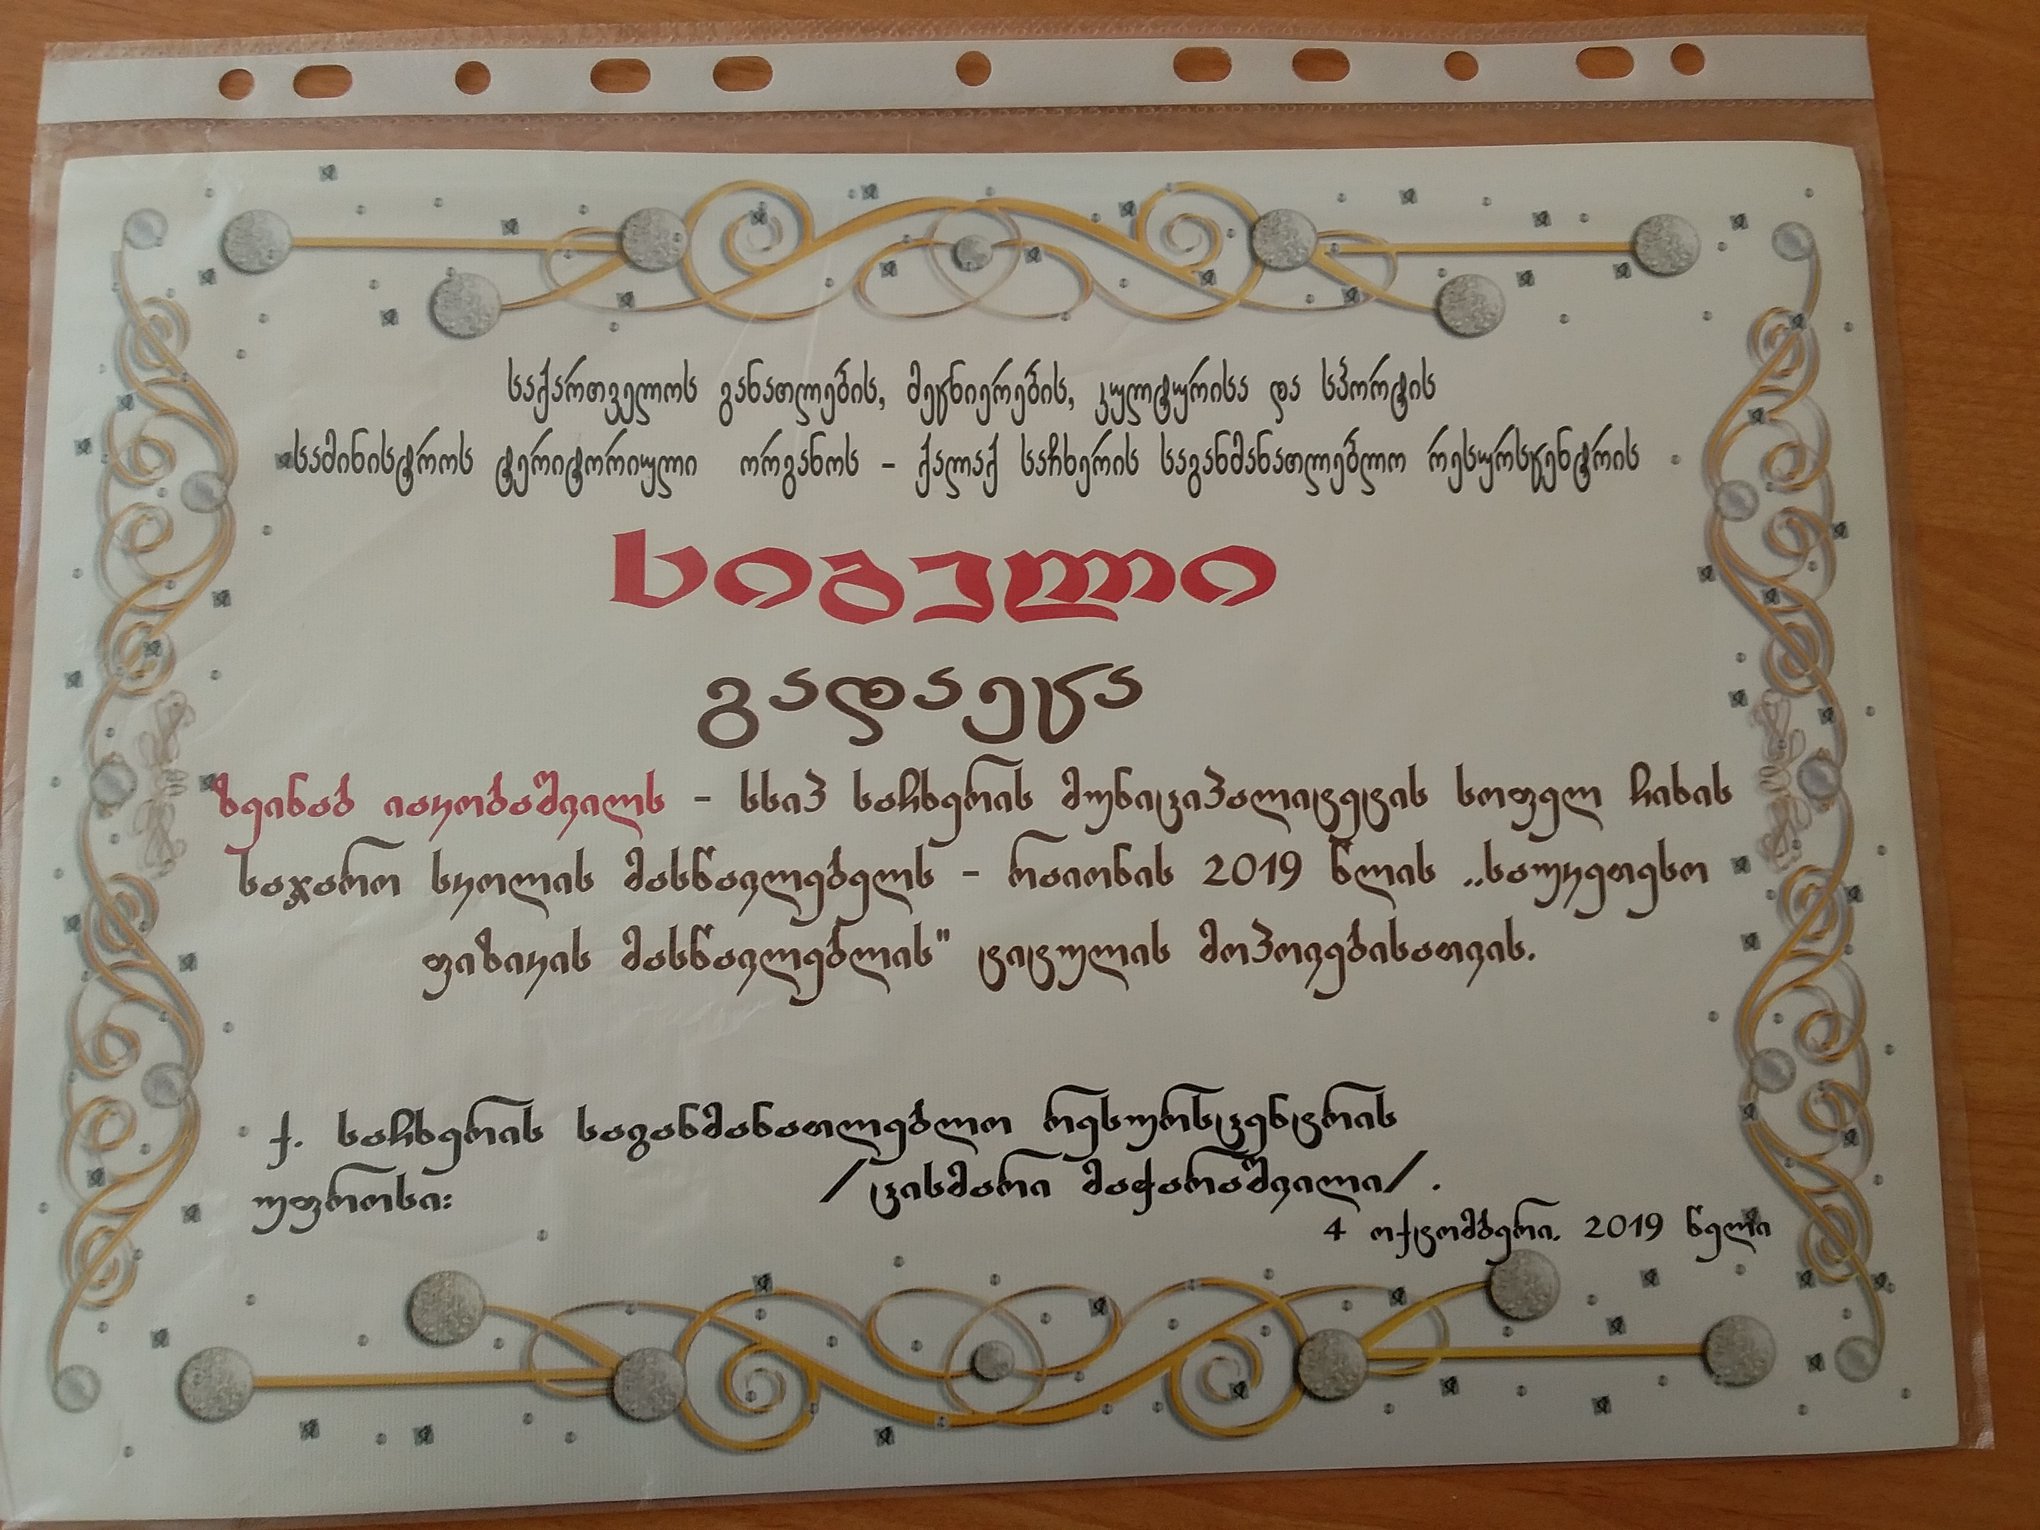 საქართველოს განათლების, მეცნიერების, კულტურისა და სპორტის
სამინისტროს ტერიტორიული ორგანოს - ქალაქ საჩხერის საგანმანათლებლო რესურსცენტრის
სიგელი
გადაეცა
ზეინაბ იაკობაშვილს - სსიპ საჩხერის მუნიციპალიტეტის სოფელ ჩიხის
საჯარო სკოლის მასწავლებელს - რაიონის 2019 წლის ,,საუკეთესო
ფიზიკის მასწავლებლის" ტიტულის მოპოვებისათვის.
ქ. საჩხერის საგანმანათლებლო რესურსცენტრის
უფროსი: /ცისმარი მაჭარაშვილი/ .
4 ოქტომბერი. 2019 წელი